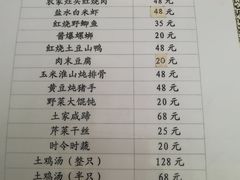 农家灶头红烧肉 48 元
盐水白米虾 48 元
红烧野鲫鱼 35 元
酱爆螺蛳 20 元
红烧土豆山鸭 48 元
肉末豆腐 20 元
玉米淮山炖排骨 48 元
黄豆炖猪手 48 元
野菜大馄饨 20 元
土家咸蹄 68 元
芹菜干丝 25 元
时令时蔬 20 元
土鸡汤（整只） 128 元
土鸡汤（半只） 68 元